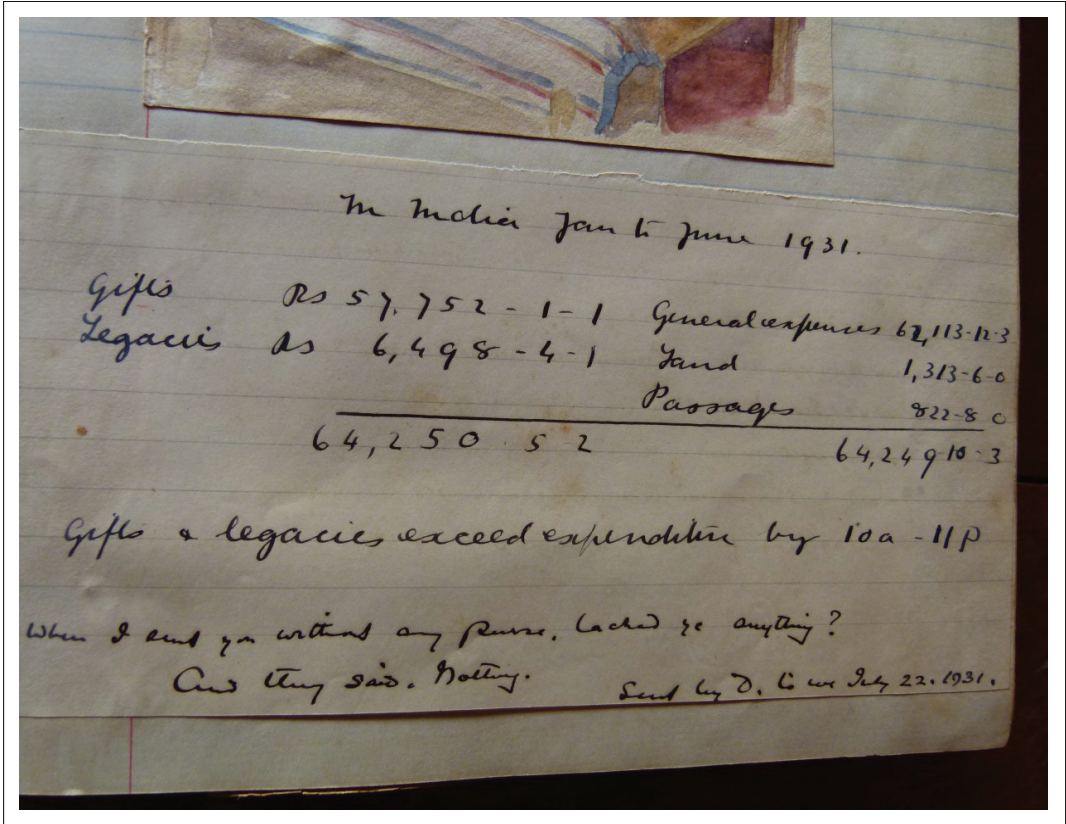 In India Jan to June 1931.
Gifts Rs 57,752-1-1 General expenses 62,113-12-3
Legacies Rs 6,498-4-1 Land 1,313-6-0
Passages 822-8 0
64,250 . 5 2 64,249 10-3
Gifts & legacies exceed expenditure by 10a - 11p
When I sent you without any purse, lacked ye anything?
And they said, Nothing. Sent by D. to me July 22. 1931.